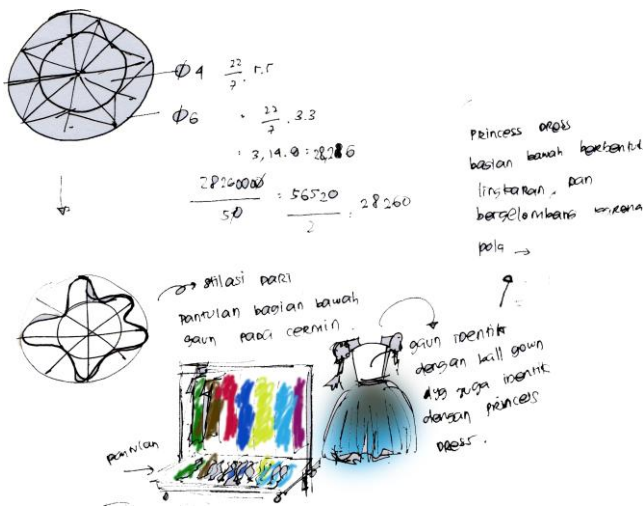 Ø4 22/7 . r.r
Ø6 . 22/7 . 3.3
: 3,14.9 : 28,26
28260000/50 : 56520/2 : 28260
Princess Dress
bagian bawah berbentuk
lingkaran. Dan
bergelombang karena
pola →
stilasi dari
pantulan bagian bawah
gaun pada cermin.
gaun identik
dengan ball gown
yg juga identik
dengan princess
dress.
pantulan